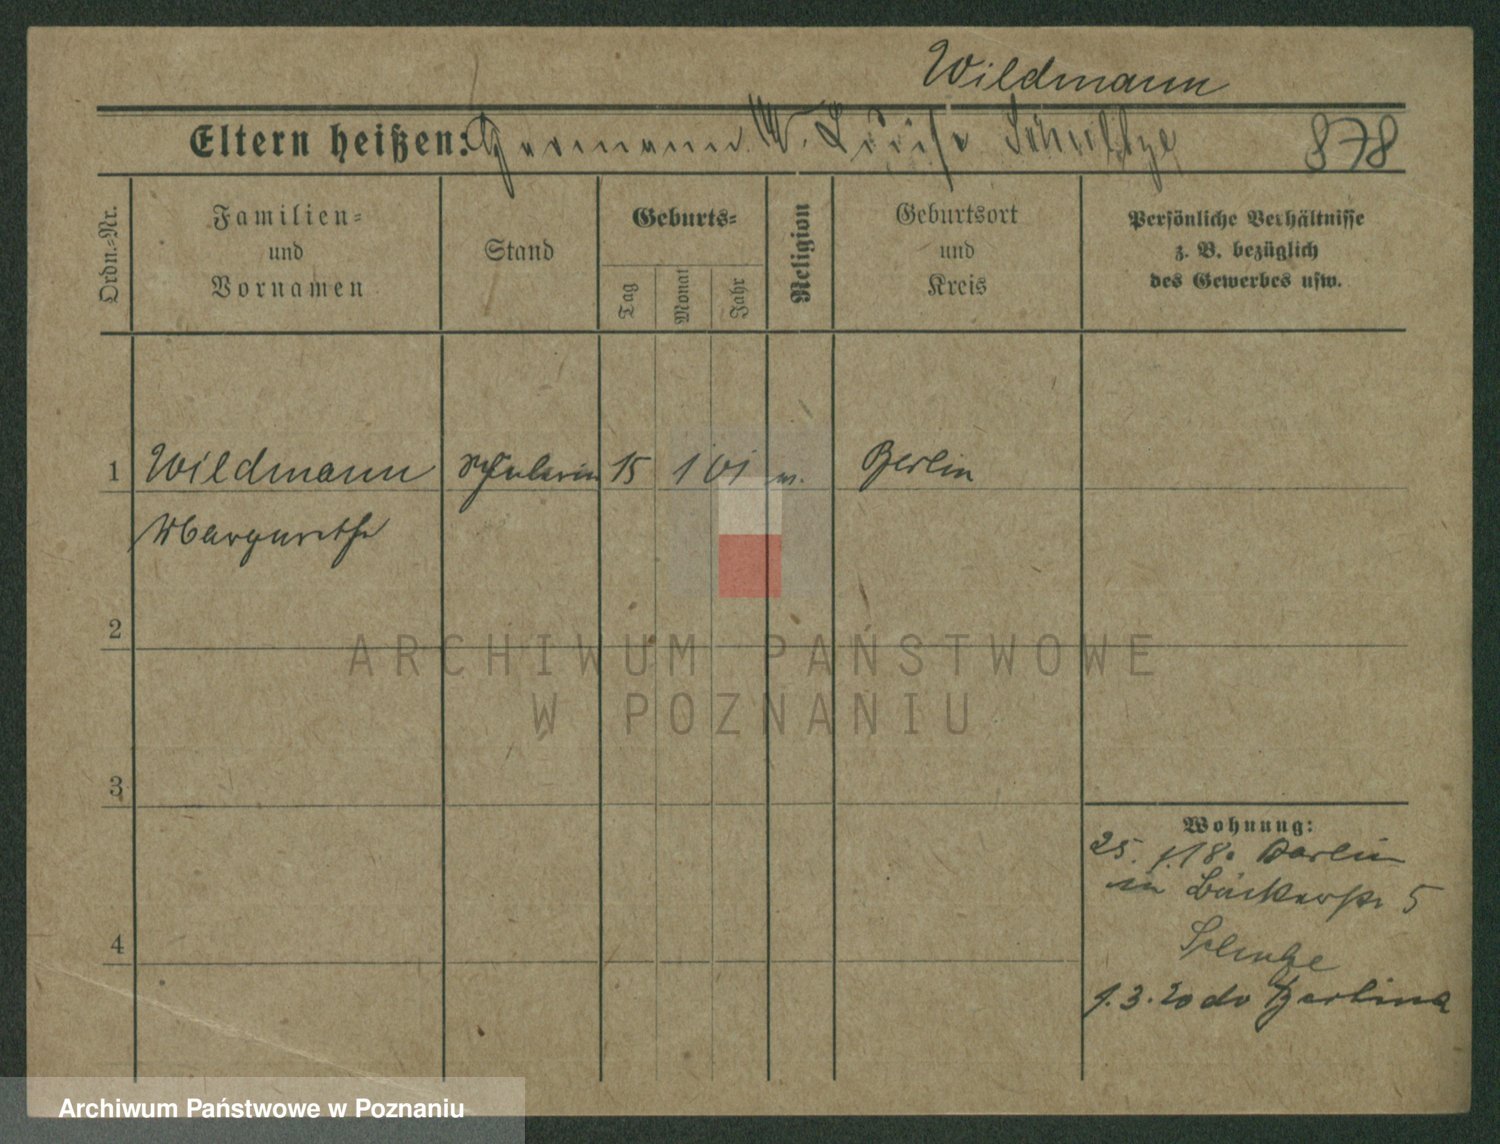 Wildmann
Eltern heißen: Hermann W. Luise Schultze 878
Ordn.-Nr.
Familien-
und
Vornamen
Stand
Geburts-
Tag
Monat
Jahr
Religion
Geburtsort
und
Kreis
Persönliche Verhältnisse
z. B. bezüglich
des Gewerbes usw.
1 Wildmann Schülerin 15 1 01 Berlin
Margarethe
2
ARCHIWUM PAŃSTWOWE
W POZNANIU
3
4
Wohnung:
25. 18. Berlin
in Bäckerstr 5
1.3.20 do Berlina
Archiwum Państwowe w Poznaniu